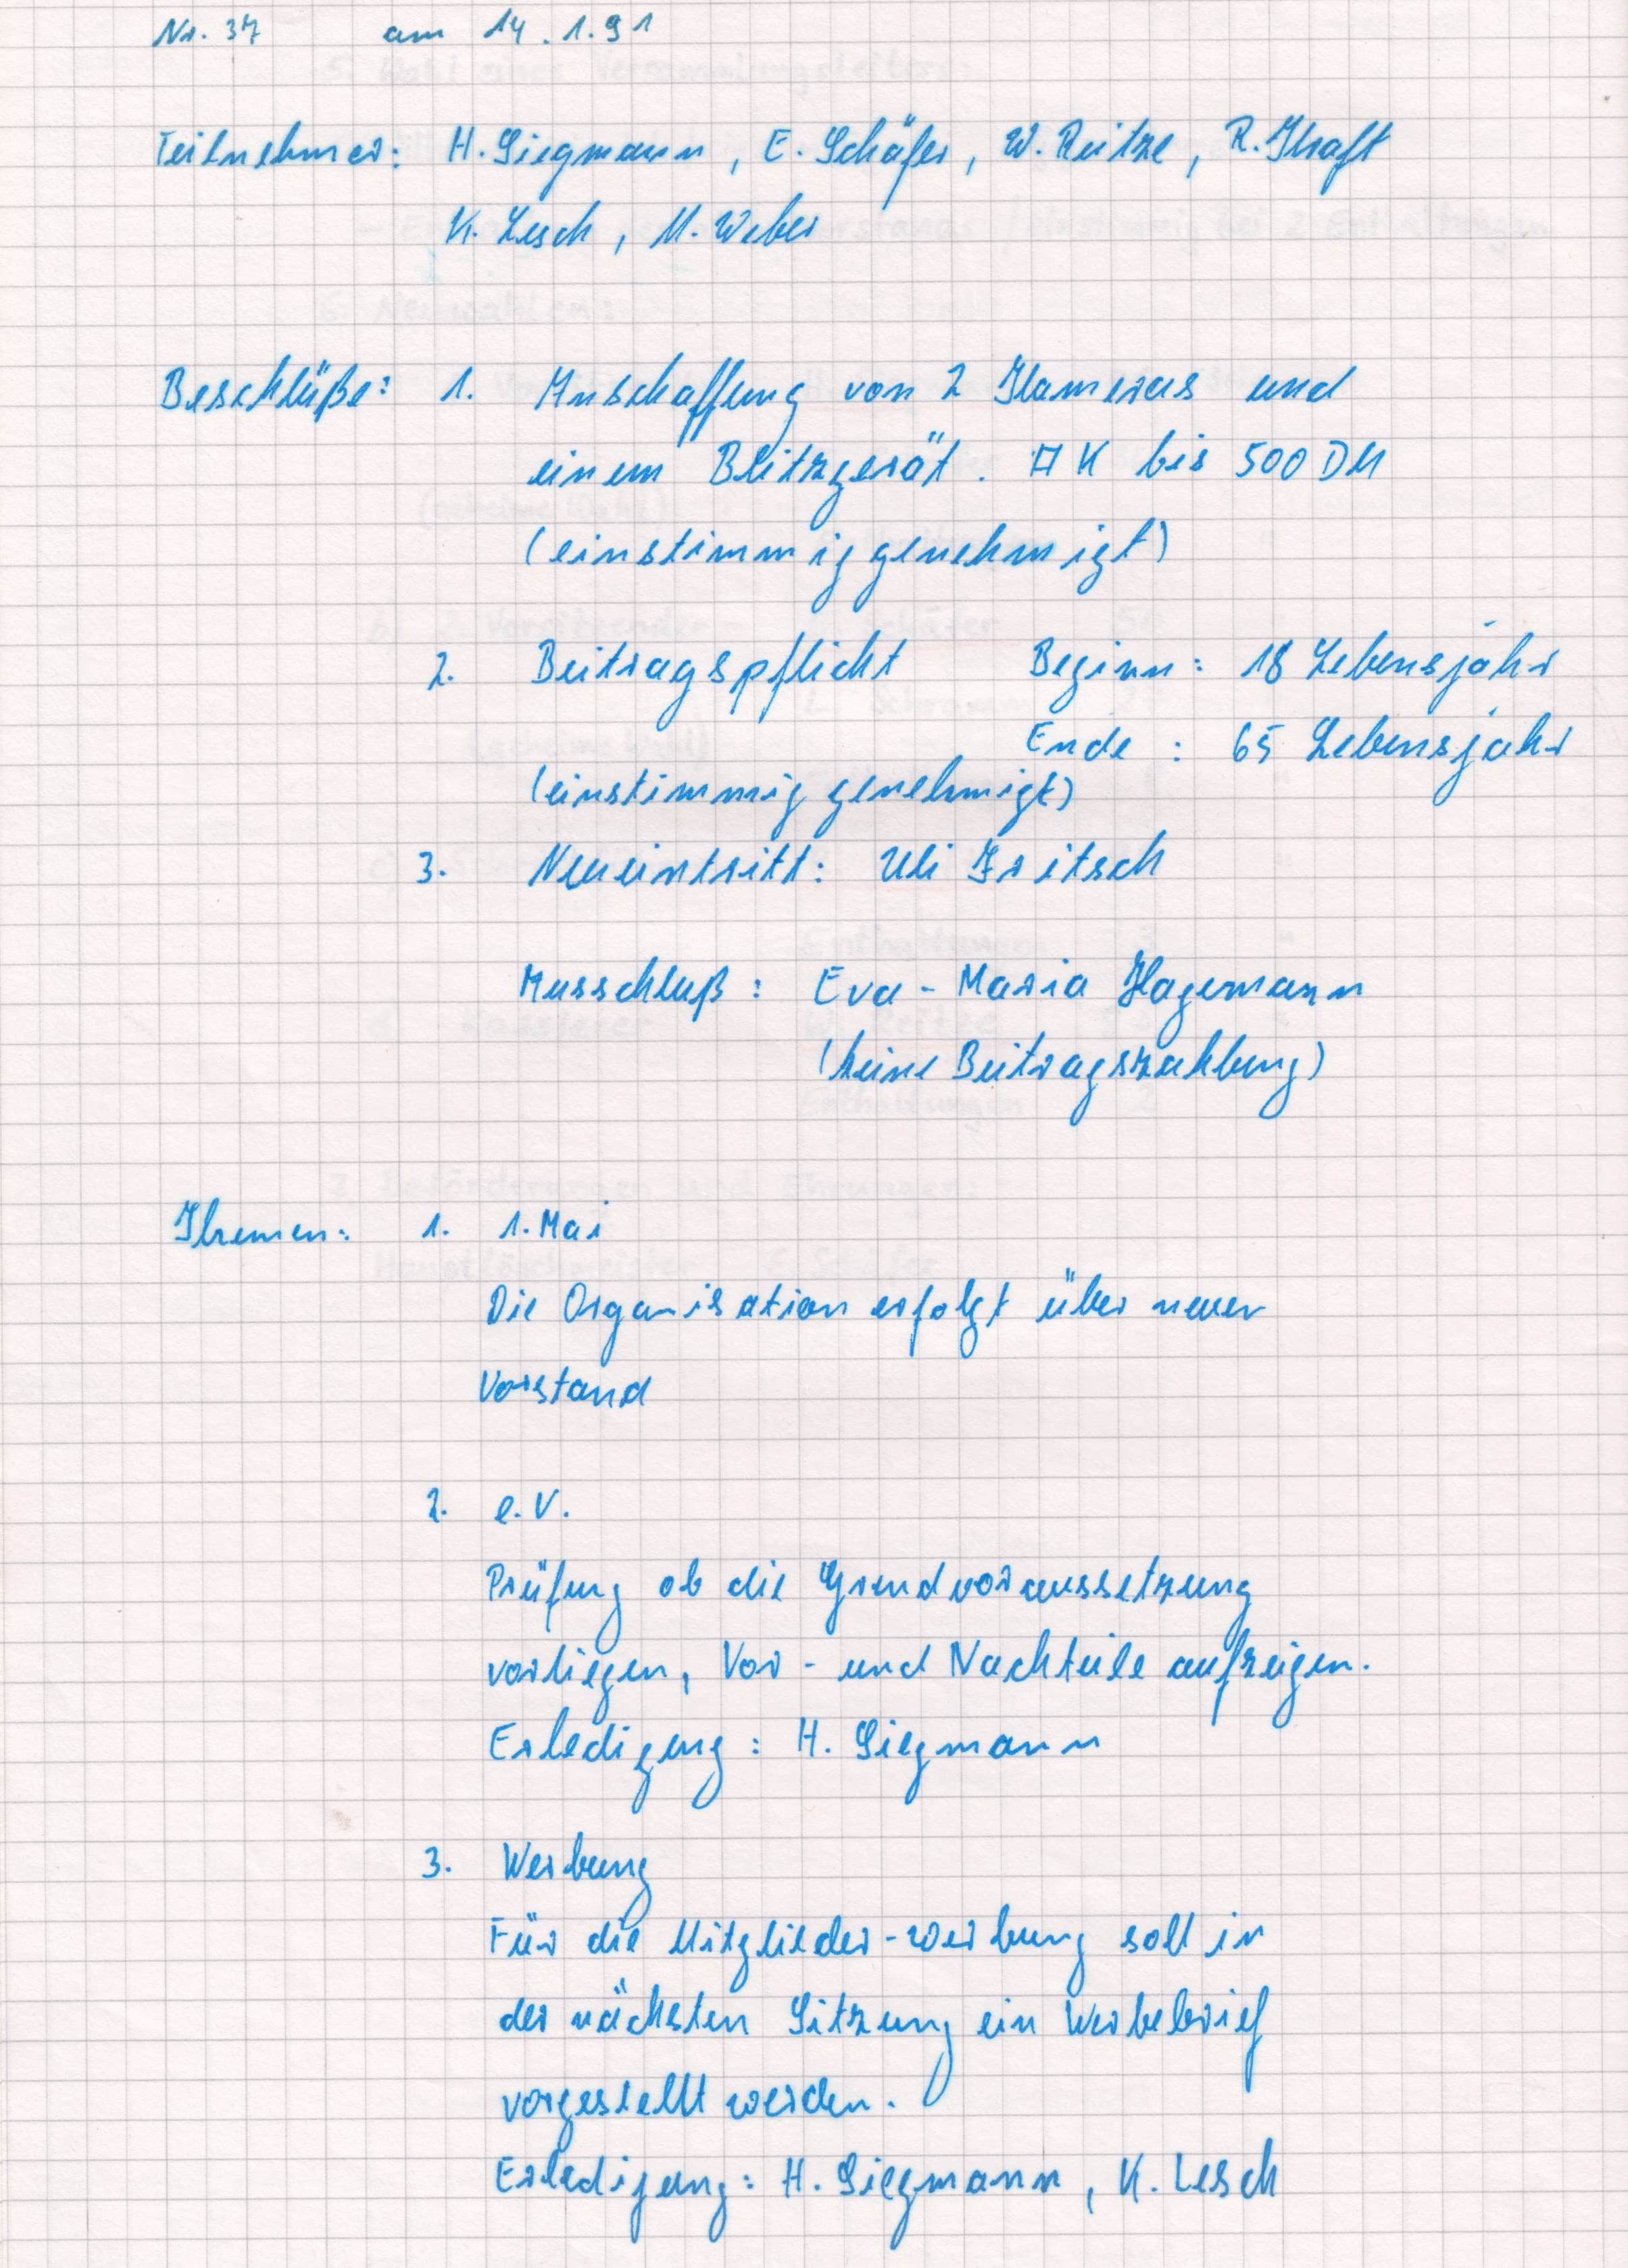 Nr. 37 am 14.1.91
Teilnehmer: H. Siegmann, E. Schäfer, W. Reitze, R. Kraft
K. Lesch, M. Weber
Beschlüße: 1. Anschaffung von 2 Kameras und
einem Blitzgerät. AK bis 500 DM
(einstimmig genehmigt)
2. Beitragspflicht Beginn: 18 Lebensjahr
Ende: 65 Lebensjahr
(einstimmig genehmigt)
3. Neueintritt: Uli Fritsch
Ausschluß: Eva-Maria Hagemann
(keine Beitragszahlung)
Themen: 1. 1. Mai
Die Organisation erfolgt über neuen
Vorstand
2. e.V.
Prüfung ob die Grundvoraussetzung
vorliegen, Vor- und Nachteile aufzeigen.
Erledigung: H. Siegmann
3. Werbung
Für die Mitglieder-Werbung soll in
der nächsten Sitzung ein Werbebrief
vorgestellt werden.
Erledigung: H. Siegmann, K. Lesch